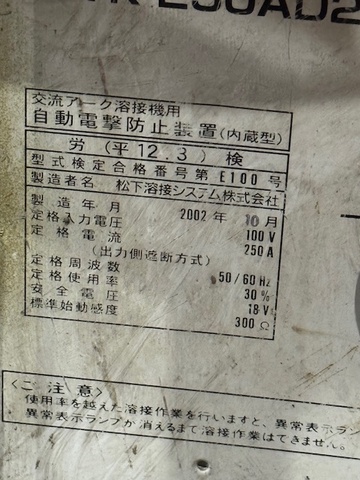 250AD2
交流アーク溶接機用
自動電撃防止装置(内蔵型)
労(平12.3)検
型式検定合格番号第E100号
製造者名 松下溶接システム株式会社
製造年月 2002年 10月
定格入力電圧 100V
定格電流 250A
(出力側遮断方式)
定格周波数 50/60Hz
定格使用率 30%
安全電圧 18V
標準始動感度 300Ω
<ご注意>
使用率を越えた溶接作業を行いますと、異常表示ラン
異常表示ランプが消えるまで溶接作業はできません。